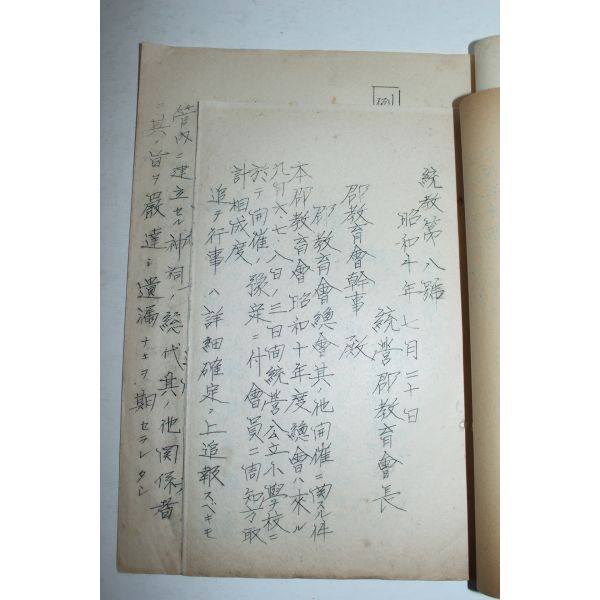 統教第八號
昭和十年七月二十日
統營郡教育會長
郡教育會幹事 殿
郡教育會總會其ノ他開催ニ関スル件
本郡教育會昭和十年度總會ハ來ル
九月六、七、八日ノ三日間統營公立小學校ニ
於テ開催ノ豫定ニ付會員ニ周知方取
計相成度
追テ行事ハ詳細確定ノ上追報スベキモ
管内ニ建立セル神祠ノ總代其ノ他関係者
ニ其ノ旨ヲ嚴達シ遺漏ナキヲ期セラレタシ